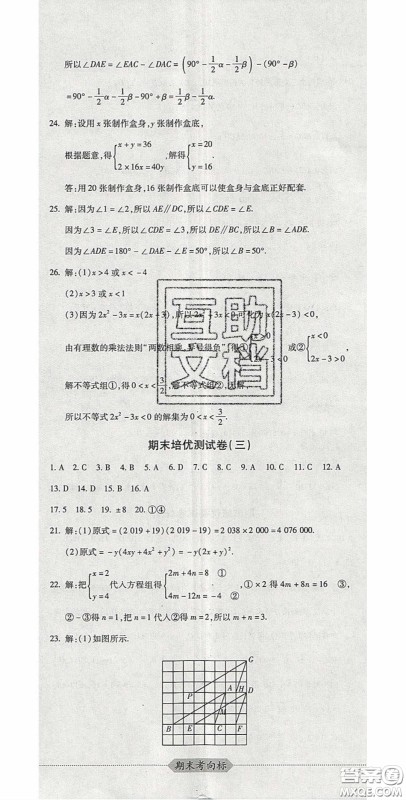 所以∠DAE=∠EAC-∠DAC=(90°-1/2α-1/2β)-(90°-β)
=90°-1/2α-1/2β-90°+β=1/2β-1/2α.
24. 解:设用x张制作盒身,y张制作盒底,
根据题意,得{x+y=36 2×16x=40y,解得{x=20 y=16.
答:用20张制作盒身,16张制作盒底可以使盒身与盒底正好配套.
25. 解:因为∠1=∠2,所以AE∥DC,所以∠CDE=∠E.
因为∠3=∠E,所以∠CDE=∠3,所以DE∥BC,所以∠B=∠ADE.
因为∠ADE=180°-∠DAE-∠E=50°,所以∠B=50°.
26. 解:(1)x>4或x<-4
(2)x>3或x<1
(3)因为2x²-3x=x(2x-3),所以2x²-3x<0可化为x(2x-3)<0,
由有理数的乘法法则“两数相乘,异号得负”,得①{x>0 2x-3<0或②{x<0 2x-3>0,
解不等式组①,得0<x<3/2,解不等式组②,无解.
所以不等式2x²-3x<0的解集为0<x<3/2.
互助文档
期末培优测试卷(三)
1. A 2. C 3. B 4. D 5. C 6. C 7. B 8. D 9. B 10. C 11. C 12. A
13. D 14. D 15. B 16. A
17. 5 18. 5 19. ±8 20. ①④
21. 解:(1)原式=(2 019+19)(2 019-19)=2 038×2 000=4 076 000.
(2)原式=-y(4xy+4x²+y²)=-y(2x+y)².
22. 解:把{x=2 y=4代入方程组得{2m+4n=8 ① 4m-12n=-4 ②,①×2得4m+8n=16 ③,
②-③得n=1,把n=1代入②得m=2,所以m+n=3.
23. 解:(1)如图所示.
G
P A H D
M
B E C F
期末考向标
答案圈
MXQE.COM